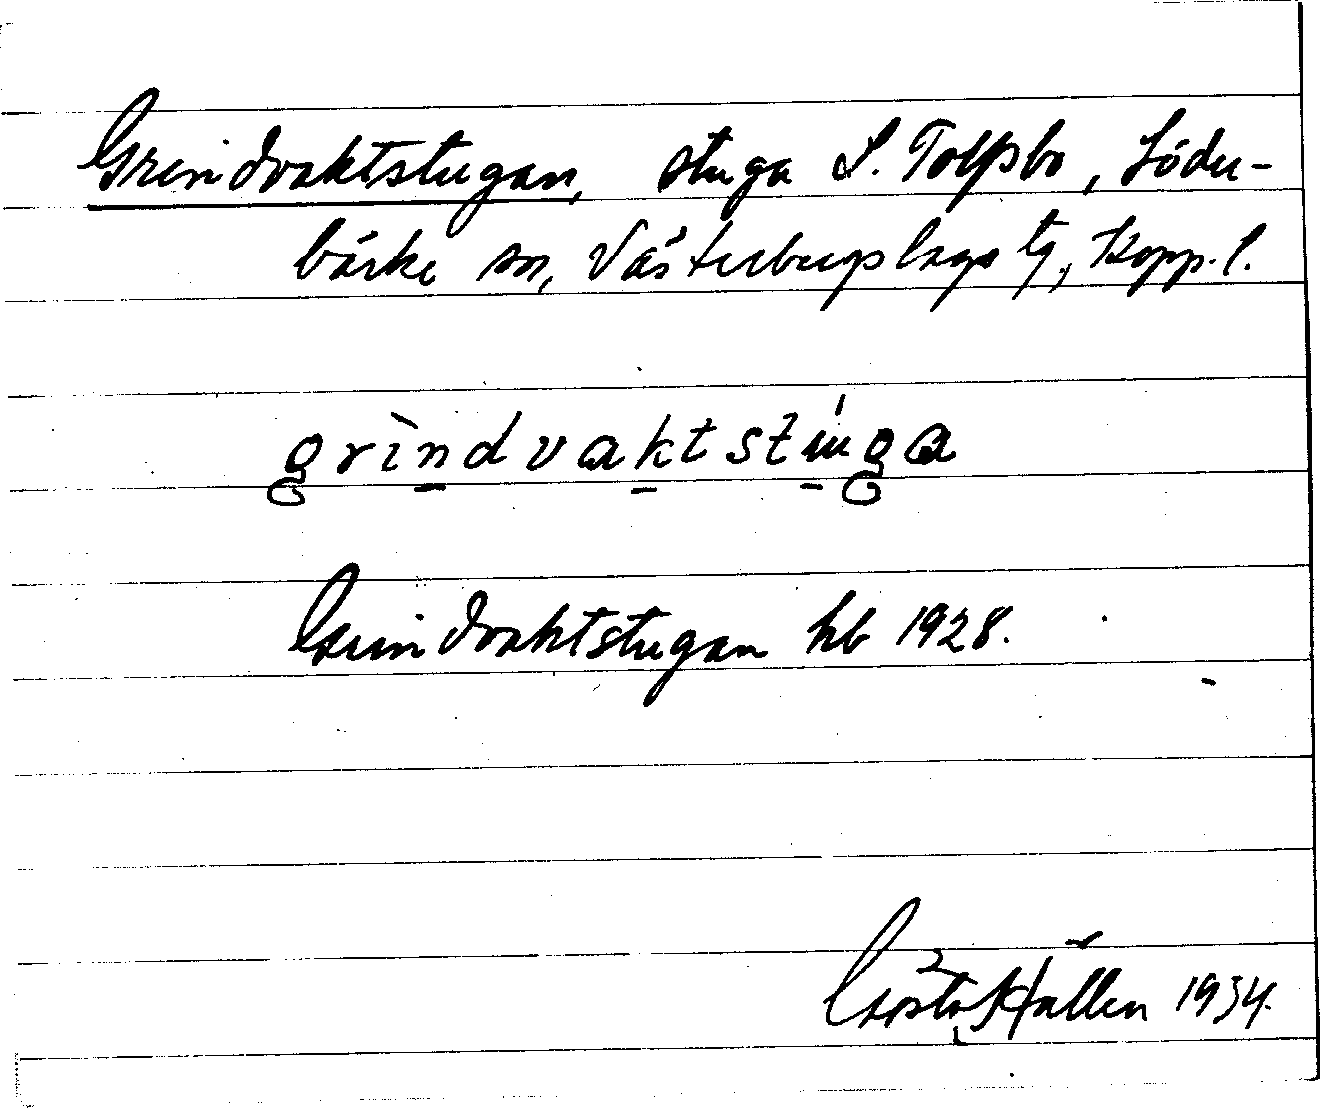 Grindvaktstugan, stuga S. Tolfsbo, Söder-
bärke sn, Västerbergslags tg, Kopp. l.
grìndvaktstúga
Grindvaktstugan hb 1928.
Gösta Hallen 1934.